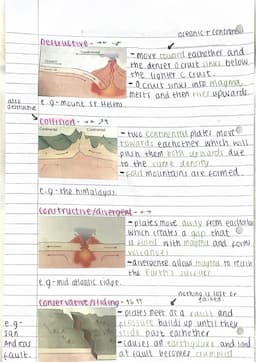 oceanic + continental
Destructive - → ←
- move toward eachother and
the denser O crust sinks below
the lighter C crust.
- O crust sinks into magma,
melts and then rises upwards.
e.g - mount St Helens.
also
destructive
Collision - → ←
Continental Continental
- two continental plates move
towards eachother which will
push them both upwards due
to the same density.
- fold mountains are formed.
e.g - the himalayas.
Constructive/divergent - ← →
- plates move away from eachother
which creates a gap that
is filled with magma and forms
volcanoes
- divergence allows magma to reach
the Earth's surface
e.g - mid atlantic ridge.
nothing is lost or
gained.
Conservative/sliding - ↑↓ ↑↑
- plates meet at a fault and
pressure builds up until they
slide past eachother
- causes an earthquake and land
at fault becomes crumpled
e.g -
san
Andreas
fault.